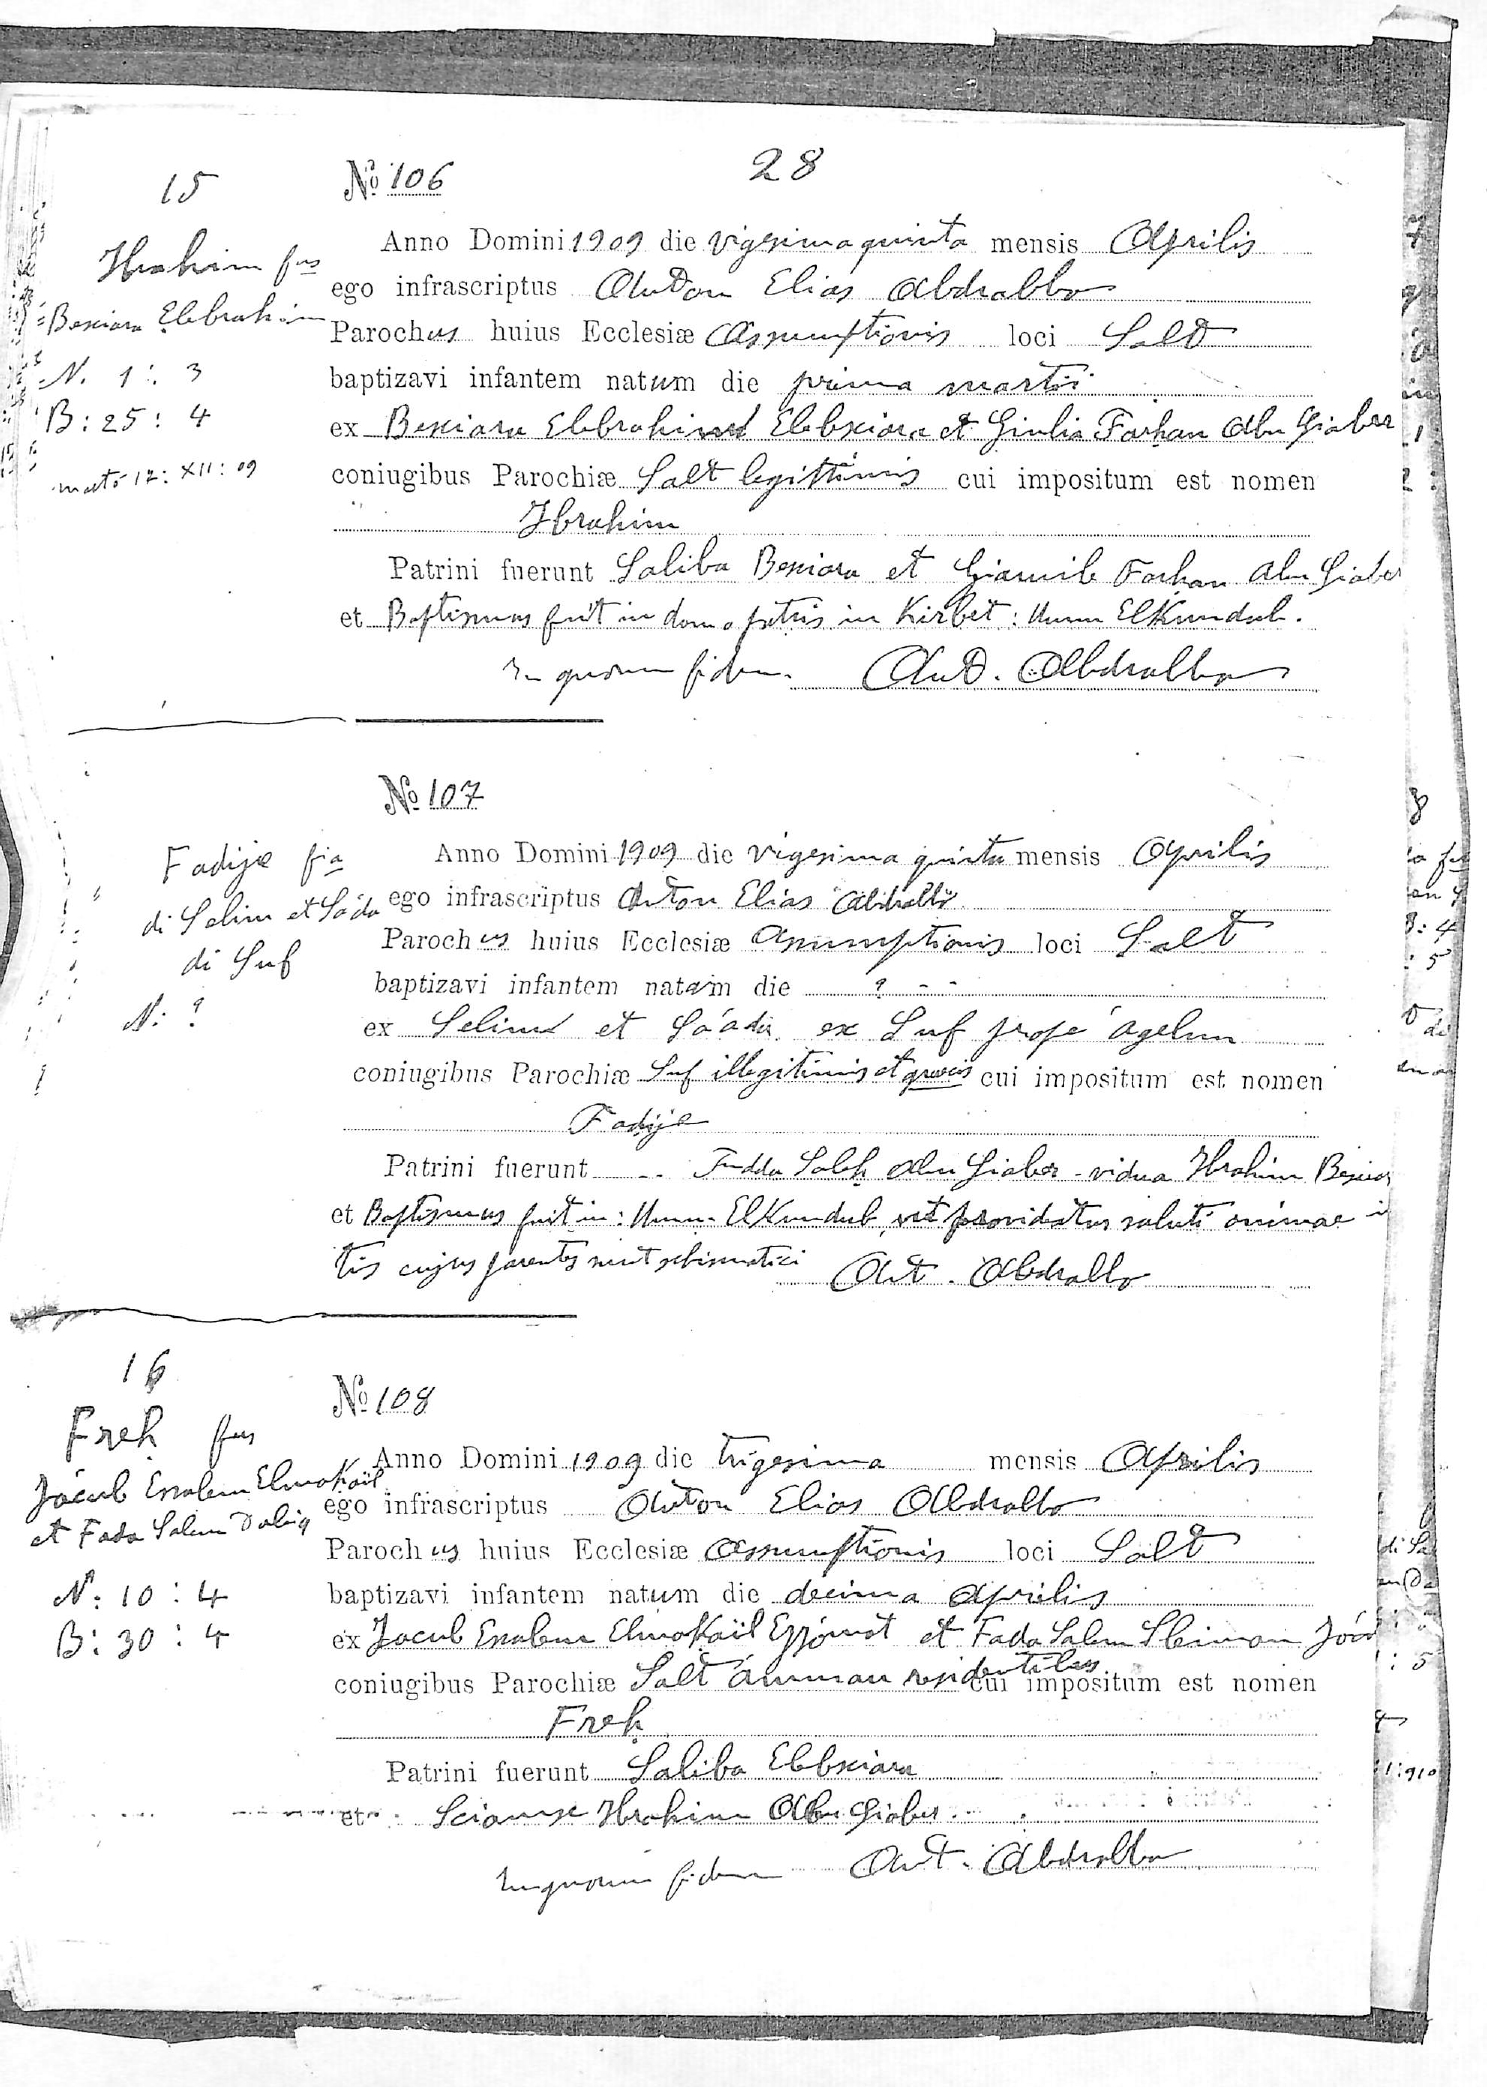 28
15
Nº 106
Ibrahim fus
Bexiara Elebrahim
N. 1 : 3
B : 25 : 4
Anno Domini 1909 die vigesima quinta mensis Aprilis
ego infrascriptus Anton Elias Abdrabbo
Parochus huius Ecclesiæ Assumptionis loci Salt
baptizavi infantem natum die prima martii
ex Bexiara Elebrahim Elebxiara et Giulia Farhan Abu Giaber
coniugibus Parochiæ Salt legittimis cui impositum est nomen
Ibrahim
Patrini fuerunt Saliba Bexiara et Giamile Farhan Abu Giaber
et Baptismus fuit in domo patris in Kirbet : Umm ElKundub.
In quorum fidem. Ant. Abdrabbo
Nº 107
Fadije fia
di Selim et Sáda
di Suf
N: ?
Anno Domini 1909 die vigesima quinta mensis Aprilis
ego infrascriptus Anton Elias Abdrabbo
Parochus huius Ecclesiæ Assumptionis loci Salt
baptizavi infantem natam die ? - -
ex Selim et Sáada ex Suf prope Agelun
coniugibus Parochiæ Suf illegitimis et grecis cui impositum est nomen
Fadije
Patrini fuerunt -- Fudda Saleh Abu Giaber - vidua Ibrahim Bexiar
et Baptismus fuit in : Umm. ElKundub, ut providetur saluti animae
cujus parentes sunt schismatici Ant. Abdrabbo
16
Nº 108
Freh fus
Jácub Essalem Elmokäil
et Fada Salem
N: 10 : 4
B: 30 : 4
Anno Domini 1909 die trigesima mensis Aprilis
ego infrascriptus Anton Elias Abdrabbo
Parochus huius Ecclesiæ Assumptionis loci Salt
baptizavi infantem natum die decima Aprilis
ex Jacub Essalem Elmokäil et Fada Salem Sleiman
coniugibus Parochiæ Salt ámman residentibus cui impositum est nomen
Freh
Patrini fuerunt Saliba Elebxiara
et Sciamse Ibrahim Abu Giaber.
In quorum fidem Ant. Abdrabbo